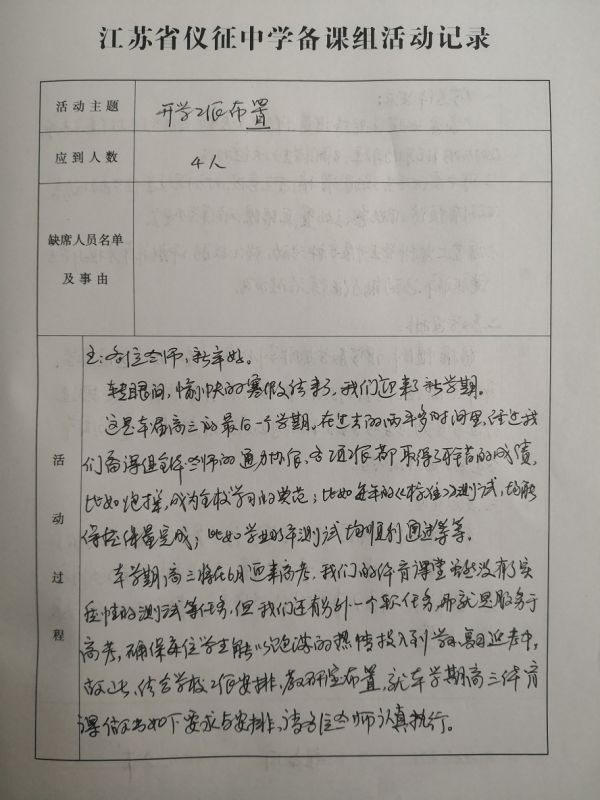 江苏省仪征中学备课组活动记录
活动主题
开学工作布置
应到人数
4人
缺席人员名单
及事由
活动过程
主:各位老师,新年好。
转眼间,愉快的寒假结束了,我们迎来了新学期。
这是本届高三的最后一个学期。在过去的两年多时间里,经过我
们备课组全体老师的通力协作,各项工作都取得了骄者的成绩,
比如跑操,成为全校学习的典范;比如每年的《标准》测试,均能
保质保量完成;比如学业水平测试均顺利通过等等。
本学期高三将在6月迎来高考,我们的体育课堂虽然没有了实
质性的测试等任务,但我们还有另外一个软任务,那就是服务于
高考,确保每位学生能以饱满的热情投入到学习复习迎考中,
故此,结合学校工作安排,教研室布置,就本学期高三体育
课做出如下要求与安排,请各位老师认真执行。